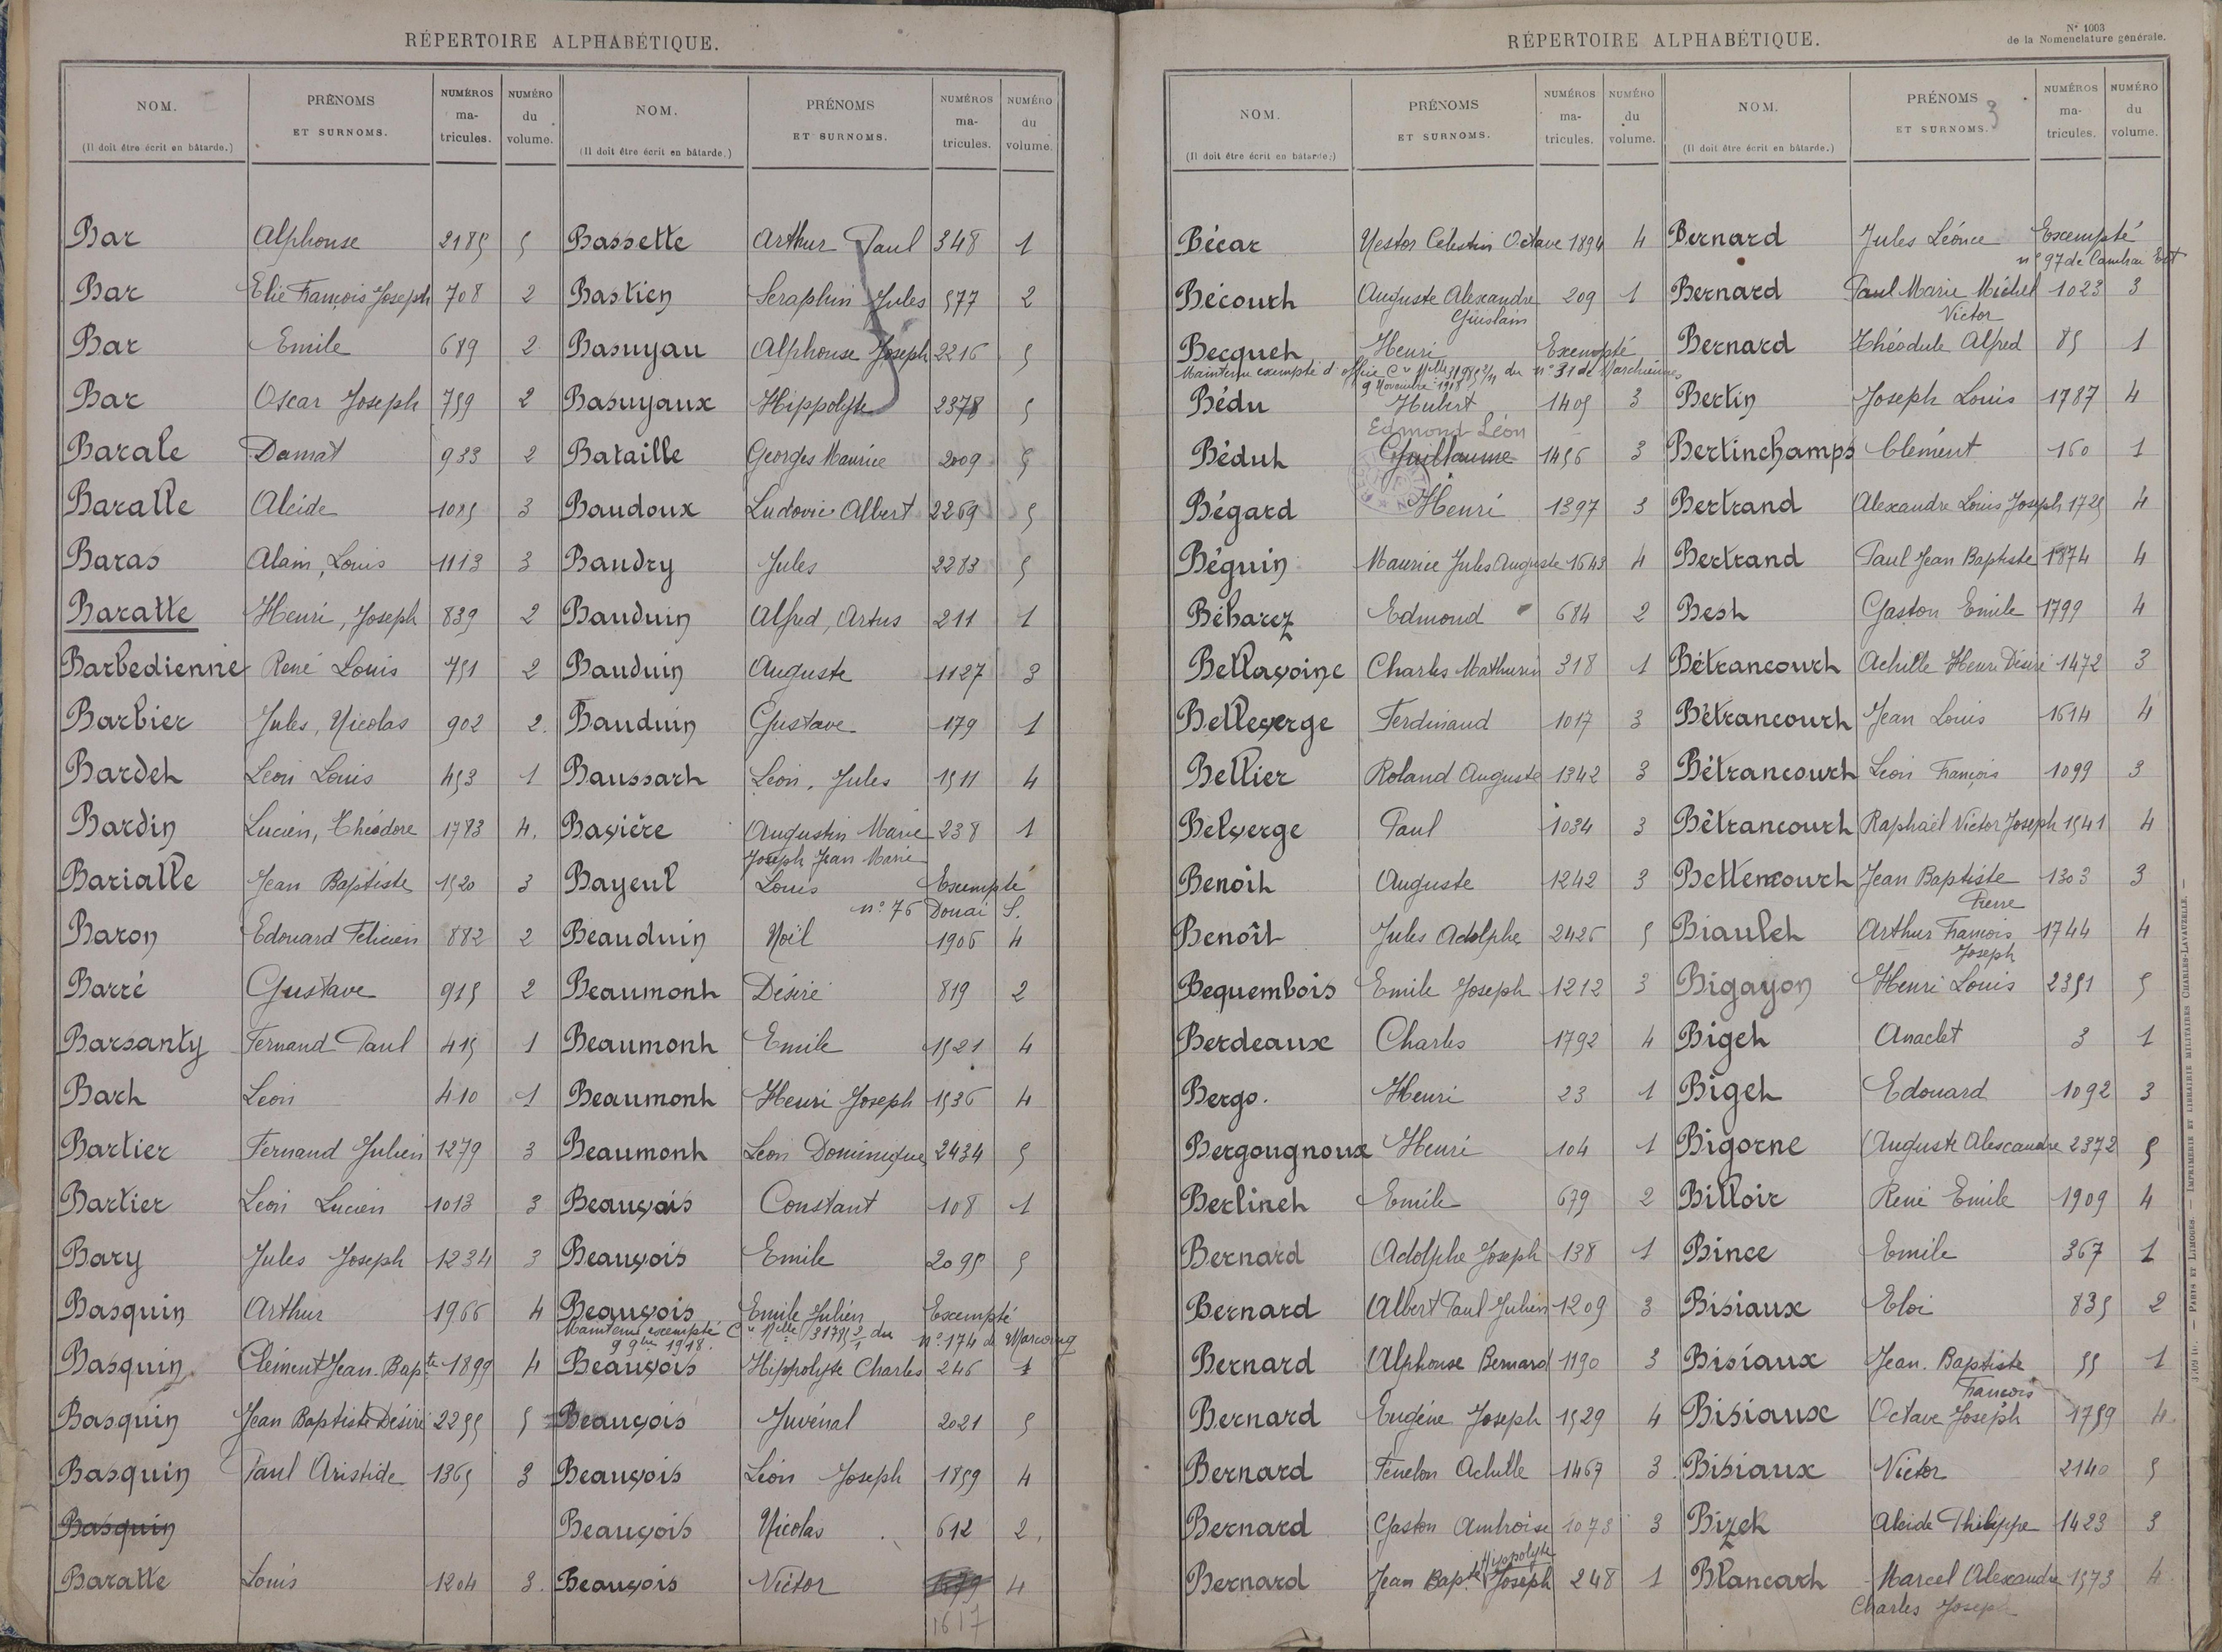 RÉPERTOIRE ALPHABÉTIQUE.
NOM. PRÉNOMS NUMÉROS NUMÉRO NOM. PRÉNOMS NUMÉROS NUMÉRO
ET SURNOMS. ma- du ET SURNOMS. ma- du
(Il doit être écrit en bâtarde.) tricules. volume. (Il doit être écrit en bâtarde.) tricules. volume.
Bar Alphonse 2185 5
Bar Elie François Joseph 708 2
Bar Emile 689 2
Bar Oscar Joseph 759 2
Barale Donat 933 2
Baralle Alcide 1085 3
Baras Alain, Louis 1113 3
Baratte Henri, Joseph 839 2
Barbedienne René Louis 751 2
Barbier Jules, Nicolas 902 2.
Bardet Leon Louis 453 1
Bardin Lucien, Théodore 1783 4.
Barialle Jean Baptiste 1520 3
Baron Edouard Felicien 882 2
Barré Gustave 915 2
Barsanty Fernand Paul 415 1
Bart Leon 410 1
Bartier Fernand Julien 1279 3
Bartier Leon Lucien 1013 3
Bary Jules Joseph 1234 3
Basquin Arthur 1966 4
Basquin Clément Jean-Bapte 1899 4
Basquin Jean Baptiste Désiré 2255 5
Basquin Paul Aristide 1365 3
Basquin
Baratte Louis 1204 3.
Bassette Arthur Paul 348 1
Bastien Seraphin Jules 577 2
Basuyau Alphonse Joseph 2216 5
Basuyaux Hippolyte 2378 5
Bataille Georges Maurice 2009 5
Baudoux Ludovic Albert 2269 5
Baudry Jules 2283 5
Bauduin Alfred, Artus 211 1
Bauduin Auguste 1127 3
Bauduin Gustave 179 1
Baussart Léon, Jules 1511 4
Bavière Augustin Marie 238 1
Joseph Jean Marie
Bayeul Louis Exempté
n° 76 Douai S.
Beauduin Noël 1906 4
Beaumont Désiré 819 2
Beaumont Emile 1521 4
Beaumont Henri Joseph 1536 4
Beaumont Léon Dominique 2434 5
Beauvais Constant 108 1
Beauvois Emile 2095 5
Beauvois Emile Julien Exempté
Maintenu exempté Cre Mlle 31785 2/1 du n° 174 de Marcoing
9 9bre 1918.
Beauvois Hippolyte Charles 246 1
Beauvois Juvénal 2021 5
Beauvois Léon Joseph 1859 4
Beauvois Nicolas 612 2.
Beauvois Victor 4
1617
RÉPERTOIRE ALPHABÉTIQUE.
N° 1003
de la Nomenclature générale.
NOM. PRÉNOMS NUMÉROS NUMÉRO NOM. PRÉNOMS 3 NUMÉROS NUMÉRO
ET SURNOMS. ma- du ET SURNOMS. ma- du
(Il doit être écrit en bâtarde.) tricules. volume. (Il doit être écrit en bâtarde.) tricules. volume.
Bécar Nestor Célestin Octave 1894 4
Bécourt Auguste Alexandre 209 1
Guislain
Becquet Henri Exempté
Maintenu exempté d'office Cre Mlle 31985 2/11 du n° 31 de Marchiennes
9 Novembre 1918
Bédu Hubert 1405 3
Edmond Léon
Bédut Guillaume 1456 3
Bégard Henri 1397 3
Béguin Maurice Jules Auguste 1643 4
Béharez Edmond 684 2
Bellavoine Charles Mathurin 318 1
Belleverge Ferdinand 1017 3
Bellier Roland Auguste 1342 3
Belverge Paul 1034 3
Benoit Auguste 1242 3
Benoît Jules Adolphe 2426 5
Bequembois Emile Joseph 1212 3
Berdeaux Charles 1792 4
Bergo. Henri 23 1
Bergougnoux Henri 104 1
Berlinet Emile 679 2
Bernard Adolphe Joseph 138 1
Bernard Albert Paul Julien 1209 3
Bernard Alphonse Bernard 1190 3
Bernard Eugène Joseph 1529 4
Bernard Fénelon Achille 1467 3
Bernard Gaston Ambroise 1073 3
Hippolyte
Bernard Jean Bapte Joseph 248 1
Bernard Jules Léonce Exempté
n° 97 de Cambrai Est
Bernard Paul Marie Michel 1023 3
Victor
Bernard Théodule Alfred 85 1
Bertin Joseph Louis 1787 4
Bertinchamps Clément 160 1
Bertrand Alexandre Louis Joseph 1725 4
Bertrand Paul Jean Baptiste 1874 4
Best Gaston Emile 1799 4
Bétrancourt Achille Henri Désiré 1472 3
Bétrancourt Jean Louis 1614 4
Bétrancourt Léon François 1099 3
Bétrancourt Raphaël Victor Joseph 1541 4
Bettencourt Jean Baptiste 1303 3
Pierre
Biaulet Arthur François 1744 4
Joseph
Bigayon Henri Louis 2351 5
Biget Anaclet 3 1
Biget Edouard 1092 3
Bigorne Auguste Alexandre 2372 5
Billoir René Emile 1909 4
Bince Emile 367 1
Bisiaux Eloi 835 2
Bisiaux Jean-Baptiste 55 1
François
Bisiaux Octave Joseph 1759 4.
Bisiaux Victor 2140 5
Bizet Alcide Philippe 1423 3
Blancart Marcel Alexandre 1573 4
Charles Joseph
PARIS ET LIMOGES. — IMPRIMERIE ET LIBRAIRIE MILITAIRES CHARLES-LAVAUZELLE.